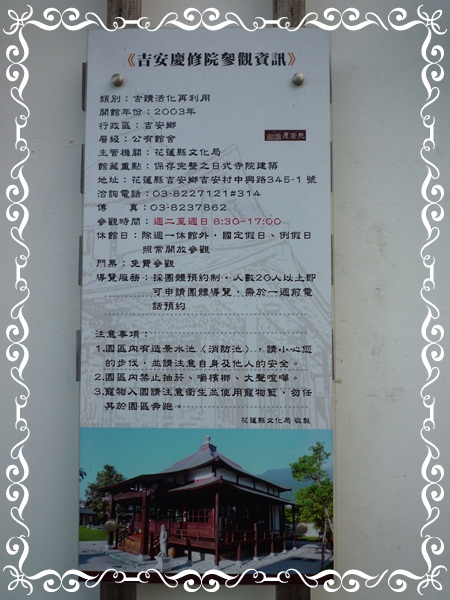 《吉安慶修院參觀資訊》
類別：古蹟活化再利用
開館年份：2003年
行政區：吉安鄉
層級：公有館舍
主管機關：花蓮縣文化局
館藏重點：保存完整之日式寺院建築
地址：花蓮縣吉安鄉吉安村中興路345-1 號
洽詢電話：03-8227121#314
傳　　真：03-8237862
參觀時間：週二至週日 8:30-17:00
休館日：除週一休館外，國定假日、例假日
照常開放參觀
門票：免費參觀
導覽服務：採團體預約制，人數20人以上即
可申請團體導覽，需於一週前電
話預約
注意事項：
1.園區內有造景水池〈消防池〉，請小心您
的步伐，並請注意自身及他人的安全。
2.園區內禁止抽菸、嚼檳榔、大聲喧嘩。
3.寵物入園請注意衛生並使用寵物籃，勿任
其於園區奔跑。
花蓮縣文化局 敬製